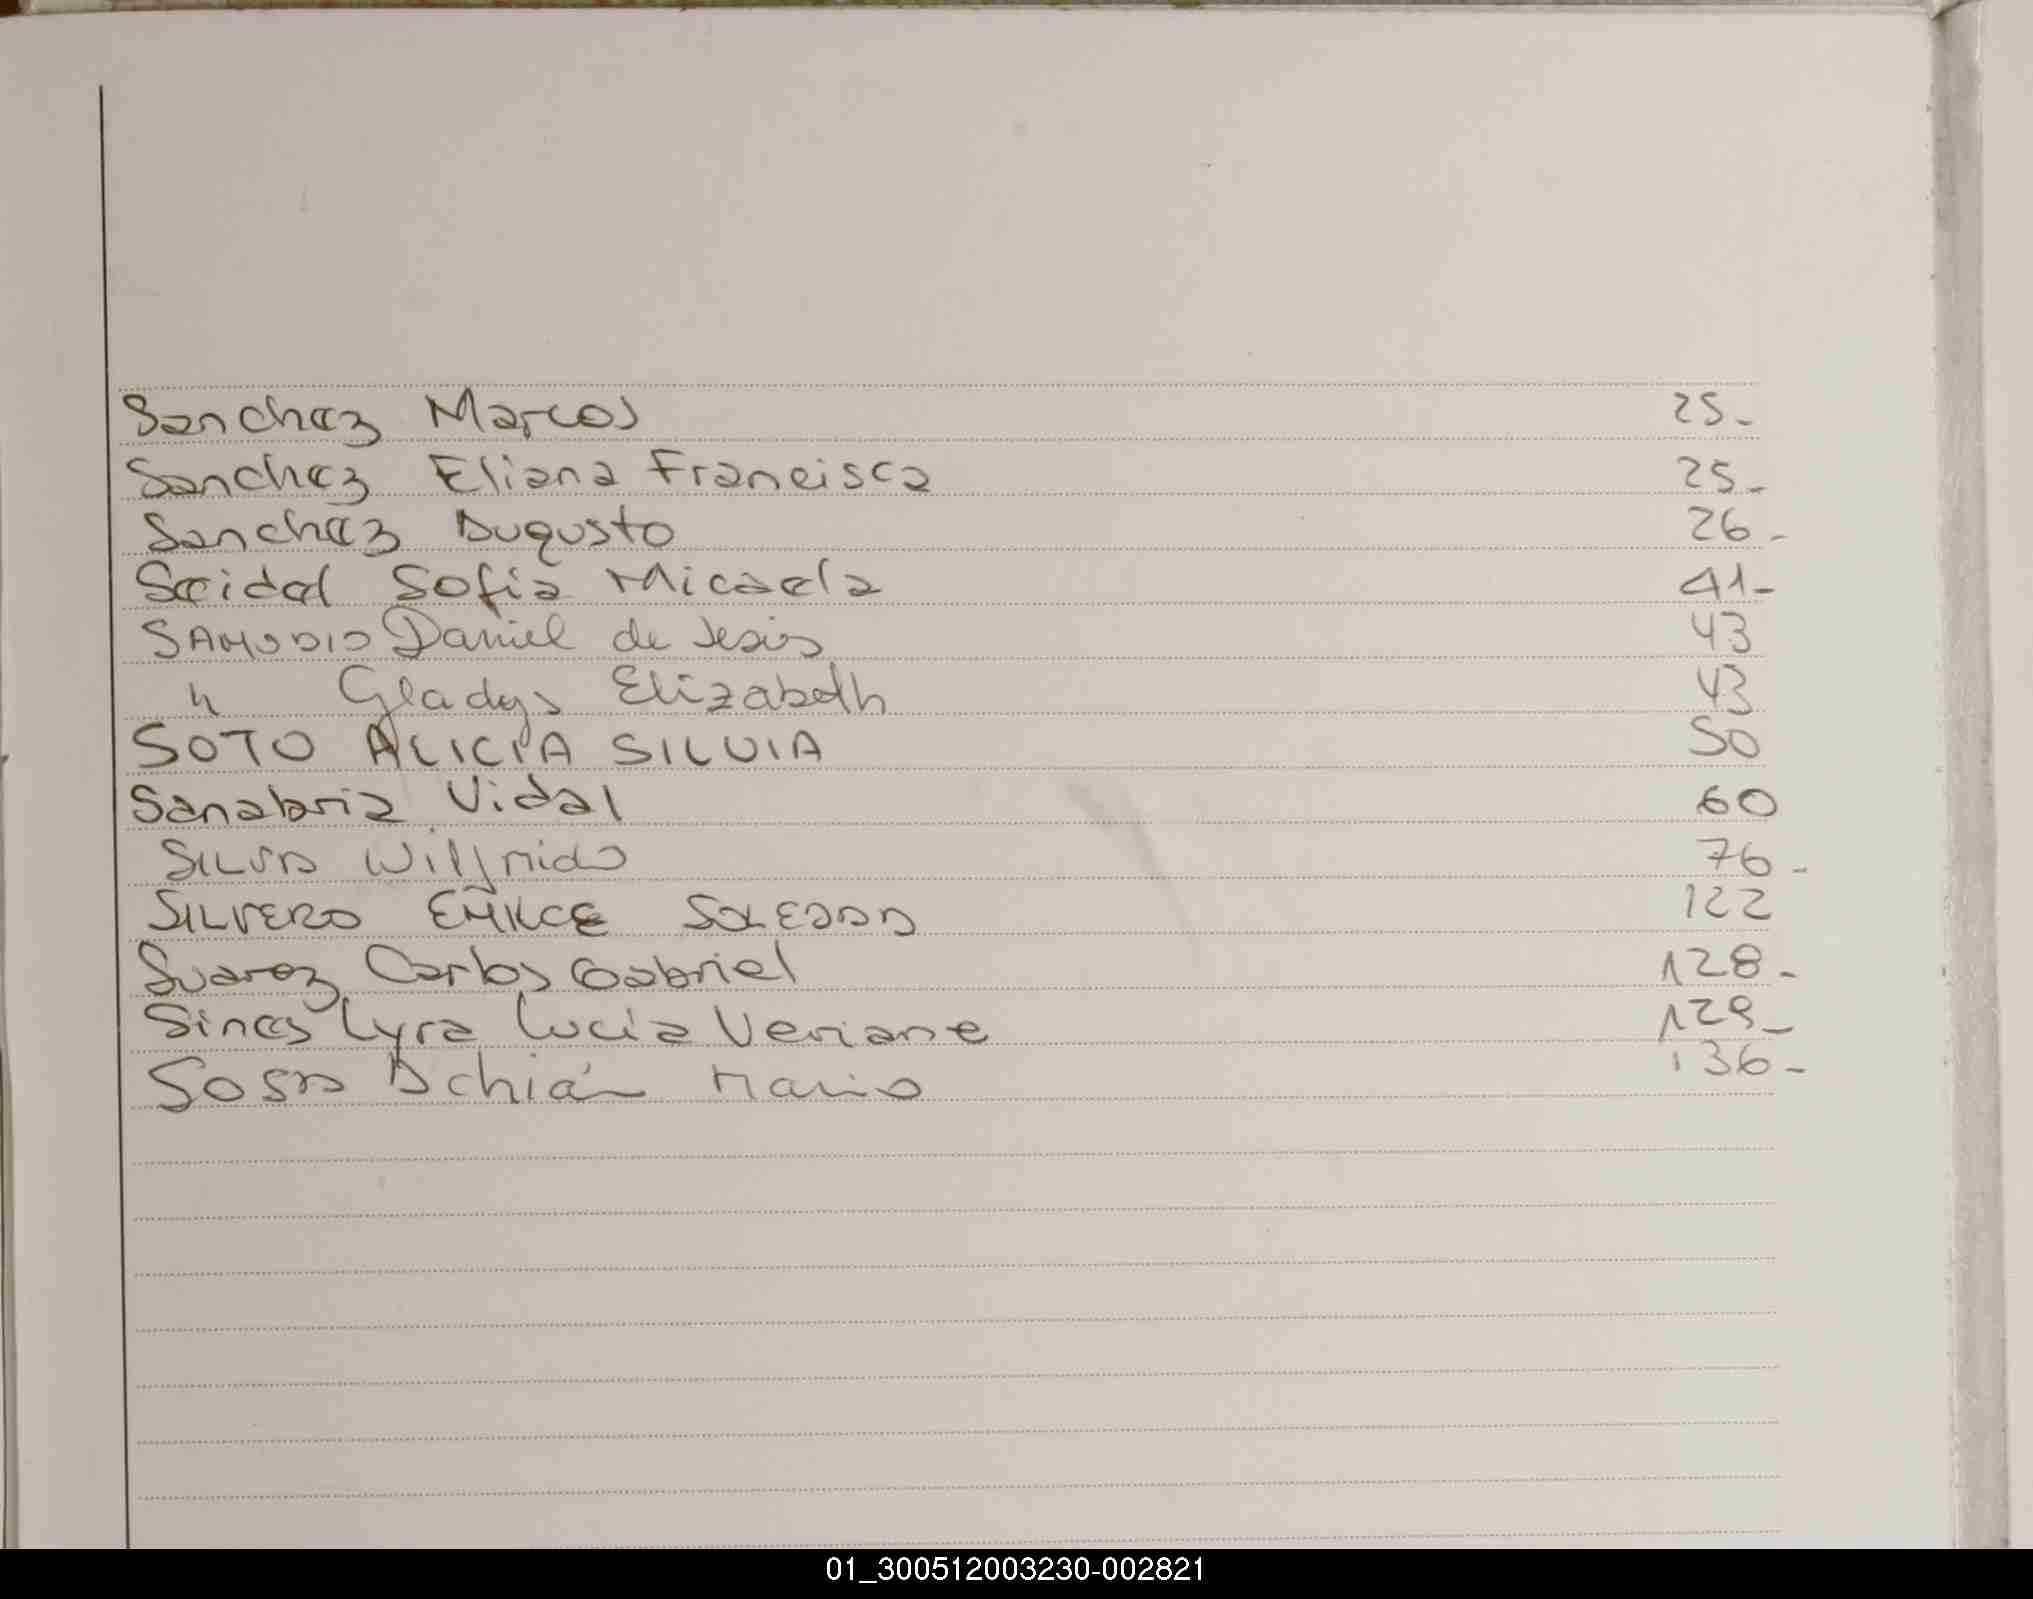 Sanchez Marcos 25-
Sanchez Eliana Francisca 25-
Sanchez Augusto 26-
Seidel Sofia Micaela 41-
SAMUDIO Daniel de Jesús 43
" Gladys Elizabeth 43
SOTO ALICIA SILVIA 50
Sanabria Vidal 60
SILVA Wilfrido 76-
SILVERO EMILCE SOLEDAD 122
Suarez Carlos Gabriel 128-
Sines Lyra Lucia Veriane 129-
SOSA Adrián Mario 136-
01_300512003230-002821